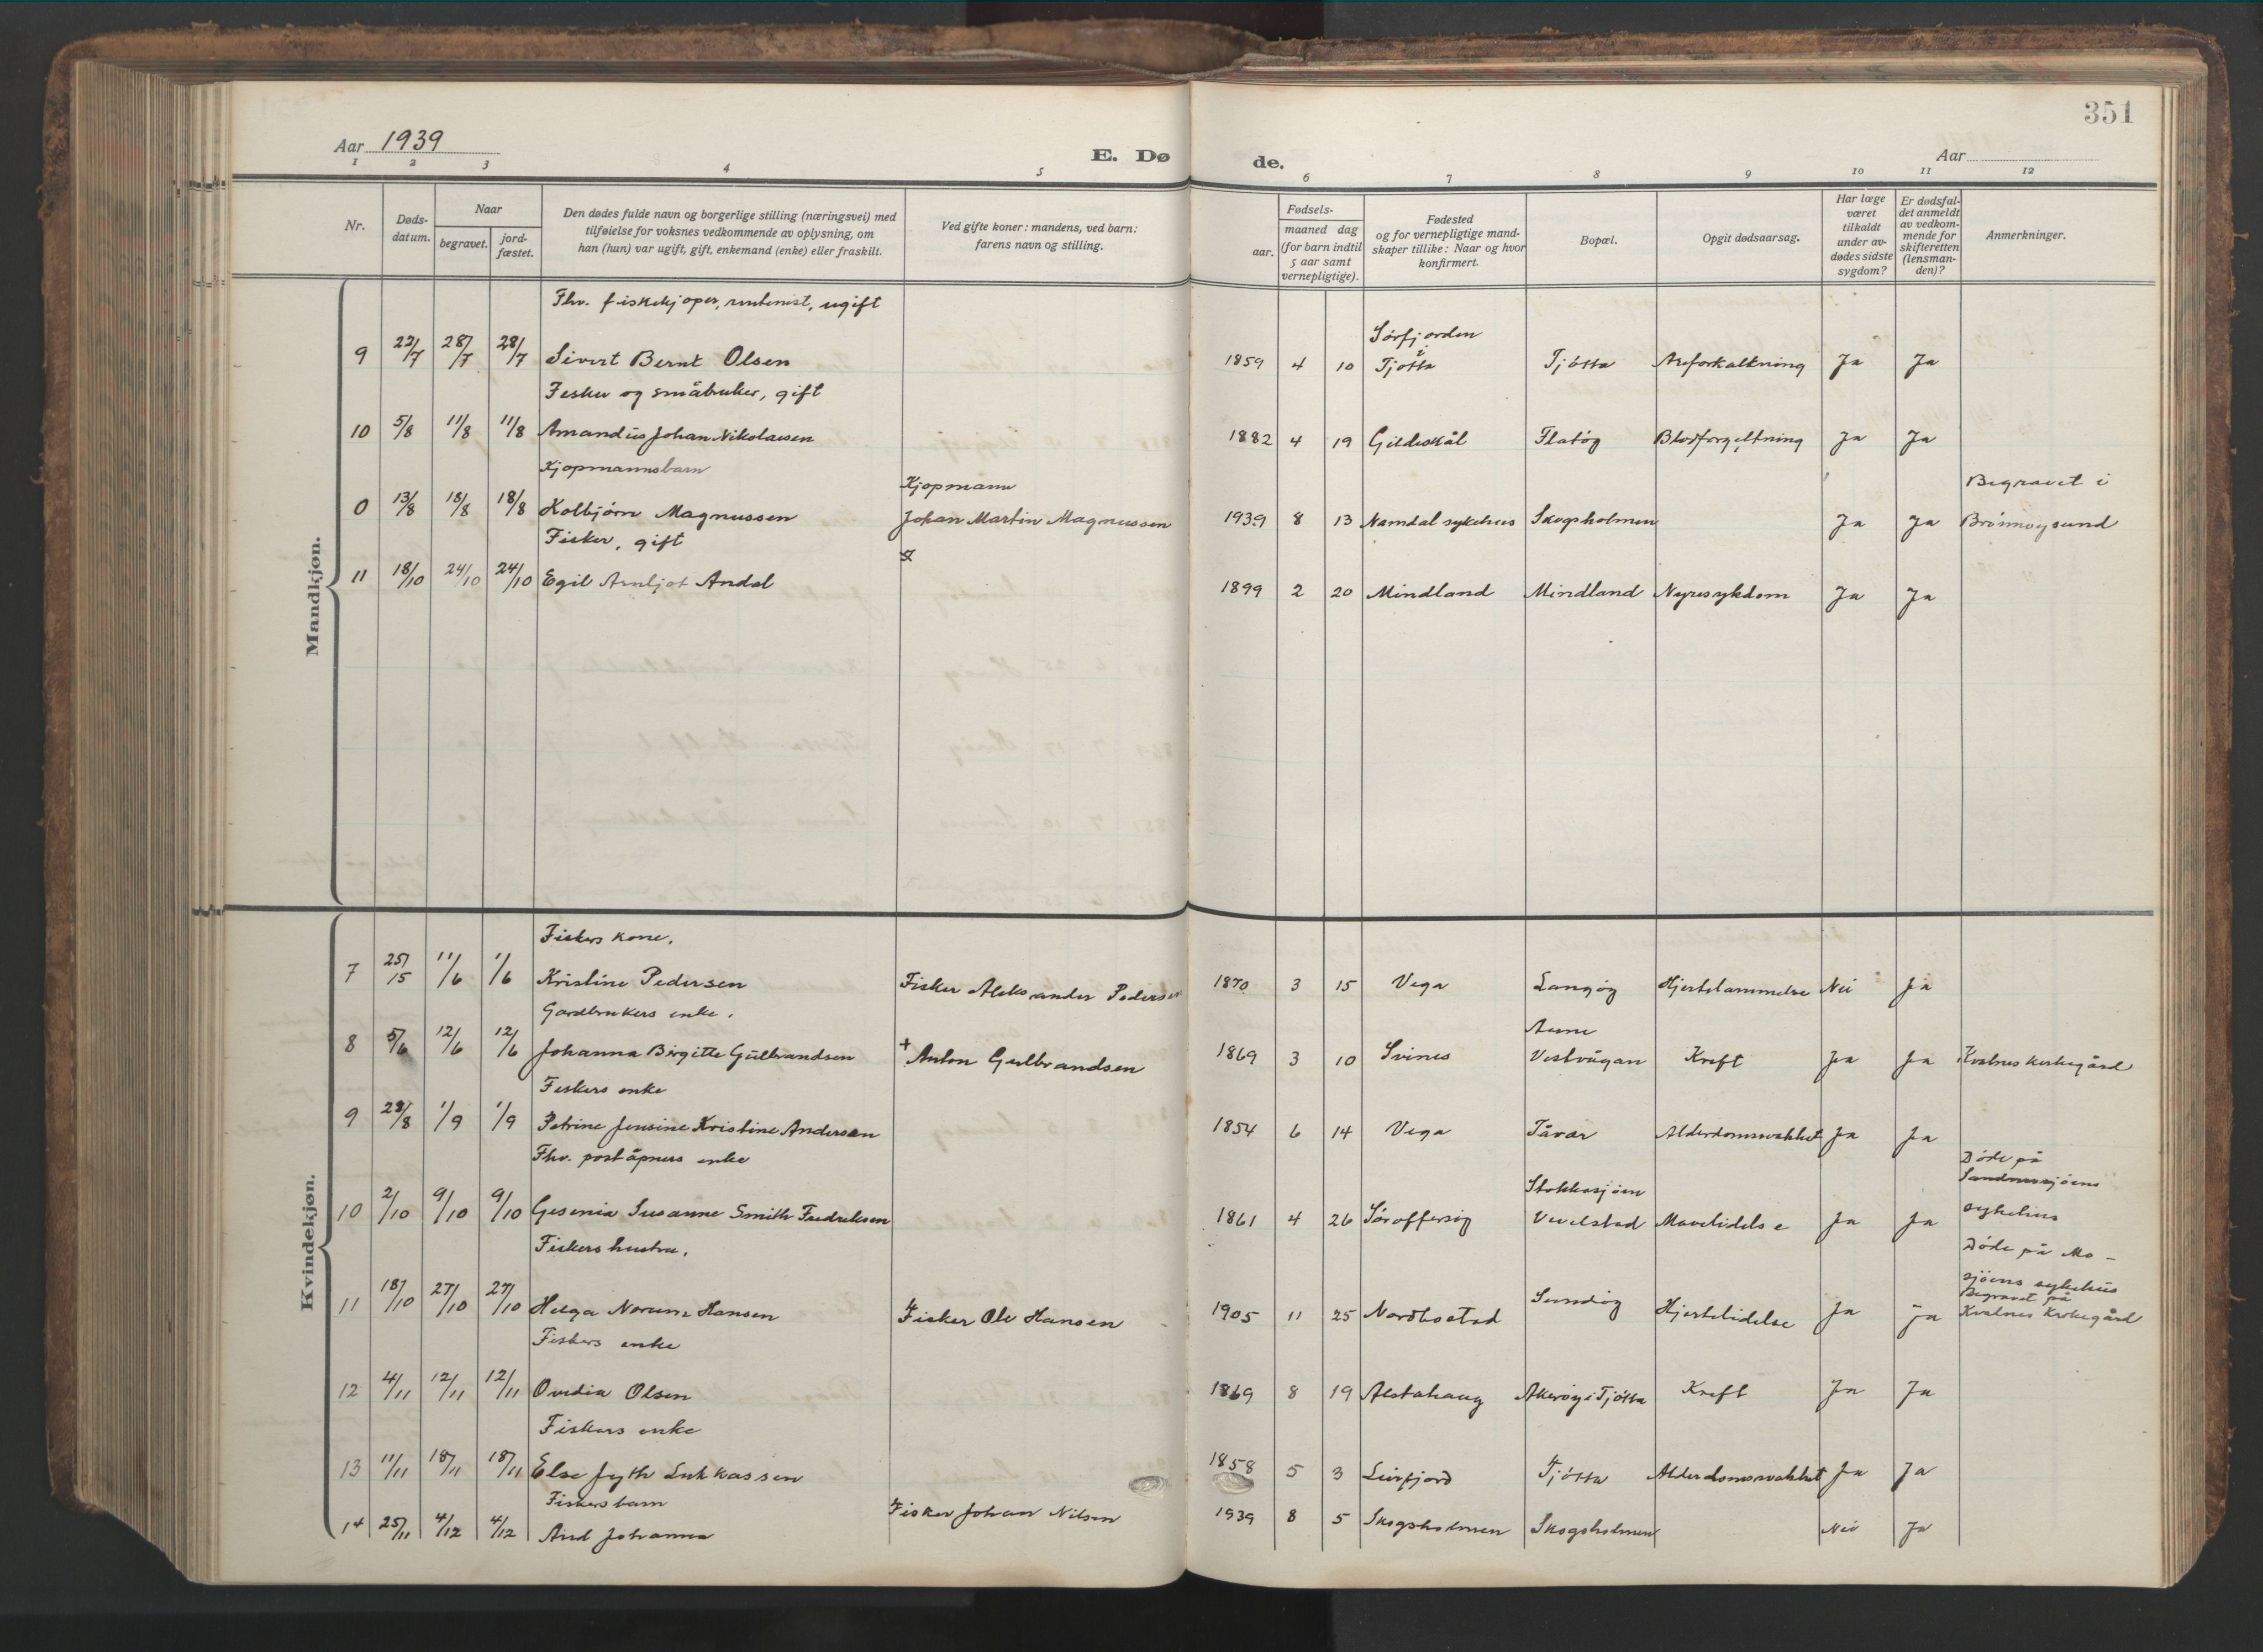 351
Aar 1939
E. Dø
de.
Aar
1 2 3 4 5 6 7 8 9 10 11 12
Nr.
Døds-datum.
Naar
begravet.
jord-fæstet.
Den dødes fulde navn og borgerlige stilling (næringsvei) med
tilføielse for voksnes vedkommende av oplysning, om
han (hun) var ugift, gift, enkemand (enke) eller fraskilt.
Ved gifte koner: mandens, ved barn:
farens navn og stilling.
Fødsels-
aar.
maaned dag
(for barn indtil
5 aar samt
vernepligtige).
Fødested
og for vernepligtige mand-
skaper tillike: Naar og hvor
konfirmert.
Bopæl.
Opgit dødsaarsag.
Har læge
været
tilkaldt
under av-
dødes sidste
sygdom?
Er dødsfal-
det anmeldt
av vedkom-
mende for
skifteretten
(lensman-
den)?
Anmerkninger.
Mandkjøn.
Fhv. fiskekjøper, rentenist, ugift
Sørfjorden
9 22/7 28/7 28/7 Sivert Bernt Olsen 1859 4 10 i Tjøtta Tjøtta Areforkalkning Ja Ja
Fisker og småbruker, gift
10 5/8 11/8 11/8 Amandus Johan Nikolaisen 1882 4 19 Gildeskål Flatøy Blodforgiftning Ja Ja
Kjøpmannsbarn Kjøpmann Begravet i
0 13/8 18/8 18/8 Kolbjørn Magnussen Johan Martin Magnussen 1939 8 13 Namdal sykehus Skogsholmen Ja Ja Brønnøysund
Fisker, gift
11 18/10 24/10 24/10 Egil Arnljot Andal 1899 2 20 Mindland Mindland Nyresykdom Ja Ja
Kvindekjøn.
Fiskers kone.
7 25/15 11/6 1/6 Kristine Pedersen Fisker Aleksander Pedersen 1870 3 15 Vega Langøy Hjertelammelse Nei Ja
Gardbrukers enke. Aune
8 5/6 12/6 12/6 Johanna Birgitte Gulbrandsen + Anton Gulbrandsen 1869 3 10 Svines Vestvågan Kreft Ja Ja Kvalnes kirkegård
Fiskers enke
9 28/8 1/9 1/9 Petrine Jensine Kristine Andersen 1854 6 14 Vega Tåvær Alderdomssvakhet Ja Ja
Fhv. poståpners enke Stokkasjøen Døde på Sandnessjøens
10 2/10 9/10 9/10 Gesenia Susanne Smith Fredriksen 1861 4 26 Søroffersøy Vevelstad Mavelidelse Ja Ja sykehus
Fiskers hustru. Døde på Mo-
sjøens sykehus
Begravet på
11 18/10 27/10 27/10 Helga Norunn Hansen Fisker Ole Hansen 1905 11 25 Nordbostad Sundøy Hjertelidelse Ja Ja Kvalnes kirkegård
Fiskers enke
12 4/11 12/11 12/11 Ovedia Olsen 1869 8 19 Alstahaug Akerøy i Tjøtta Kreft Ja Ja
Fiskers enke
13 11/11 18/11 18/11 Else Jyth Lukkassen 1858 5 3 Leirfjord Tjøtta Alderdomssvakhet Ja Ja
Fiskersbarn
14 25/11 4/12 4/12 Aud Johanna Fisker Johan Nilsen 1939 8 5 Skogsholmen Skogsholmen Nei Ja